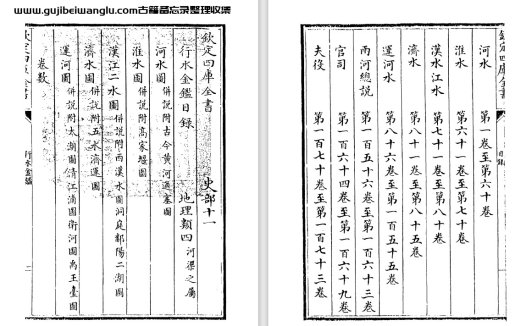 www.gujibeiwanglu.com古籍备忘录整理收集
欽定四庫全書 史部十一
行水金鑑目錄 地理類四 河渠之屬
河水圖 併說附古今黃河遷塞圖
淮水圖 併說附高家堰圖
漢江二水圖 併說附兩漢水圖洞庭鄱陽二湖圖
濟水圖 併說附五水濟運圖
運河圖 併說附太湖圖清江浦圖衛河圖禹王臺圖
卷數
行水金鑑
河水 第一卷至第六十卷
淮水 第六十一卷至第七十卷
漢水江水 第七十一卷至第八十卷
濟水 第八十一卷至第八十五卷
運河水 第八十六卷至第一百五十五卷
兩河總說 第一百五十六卷至第一百六十三卷
官司 第一百六十四卷至第一百六十九卷
夫役 第一百七十卷至第一百七十三卷